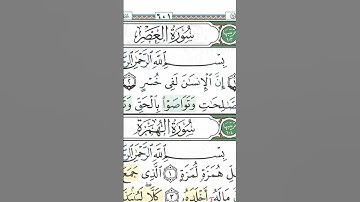 ٦٠١
سُورَةُ الْعَصْرِ
بِسْمِ اللَّهِ الرَّحْمَٰنِ
إِنَّ الْإِنسَٰنَ لَفِى خُسْرٍ ٢
وَتَوَاصَوْا۟ بِالْحَقِّ
سُورَةُ الْهُمَزَةِ
بِسْمِ اللَّهِ الرَّحْمَٰنِ
هُمَزَةٍ لُّمَزَةٍ ١ الَّذِى جَمَعَ
مَالَهُۥٓ أَخْلَدَهُۥ ٣ كَلَّا